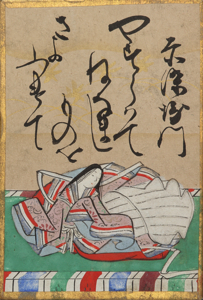 赤染衛門
やすらはて
ねなまし
ものを
さよ
ふけて